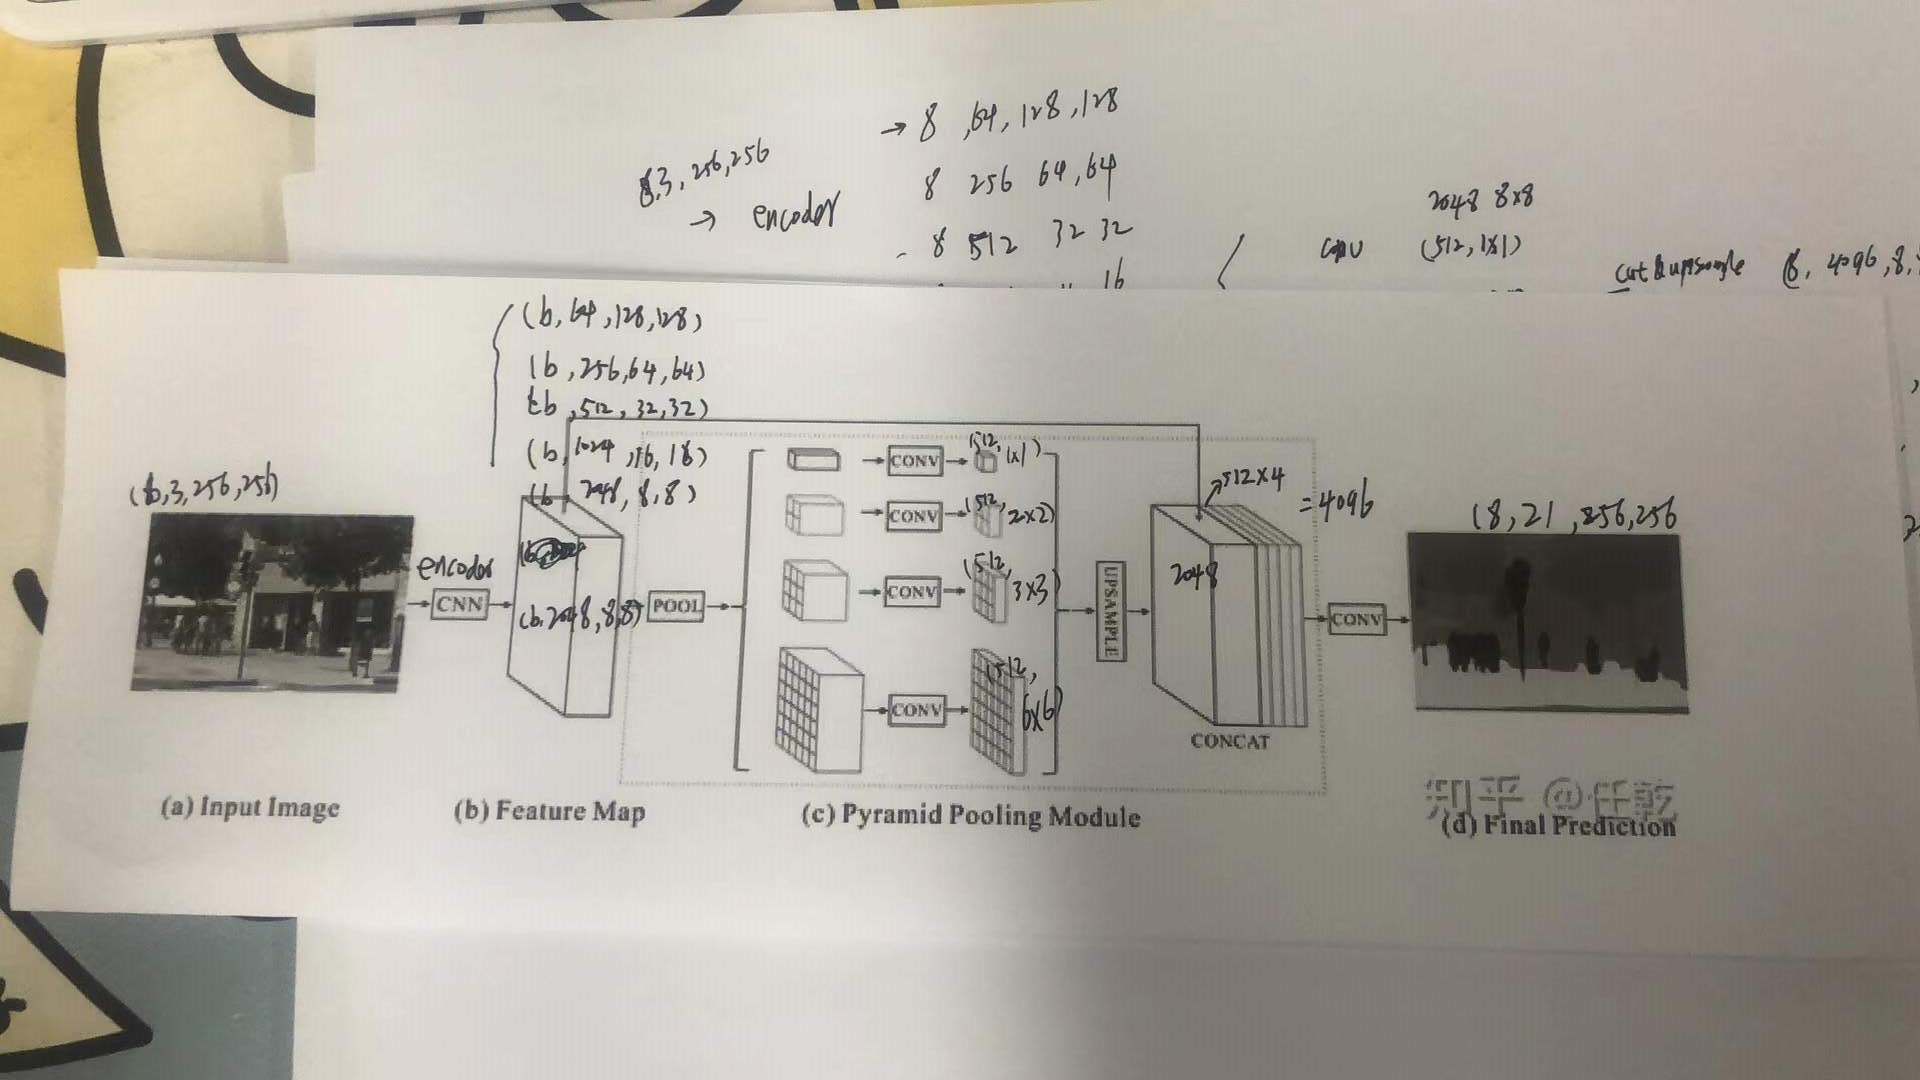 → 8 ,64, 128 ,128
8,3, 256,256
8 256 64,64
→ encoder
2048 8x8
8 512 32 32
conv (512, 1x1)
cat & upsample (8, 4096, 8,
16
(b, 64, 128, 128)
(b, 256, 64, 64)
(b, 512, 32, 32)
(b, 1024, 16, 16)
(b, 2048, 8, 8)
(b,3,256,256)
encoder
CNN
(b, 2048, 8,8)
POOL
CONV (512, 1x1)
CONV (512, 2x2)
CONV (512, 3x3)
CONV (512, 6x6)
UPSAMPLE
2048
512x4
=4096
CONCAT
CONV
(8, 21, 256, 256
(a) Input Image
(b) Feature Map
(c) Pyramid Pooling Module
知乎 @任乾
(d) Final Prediction